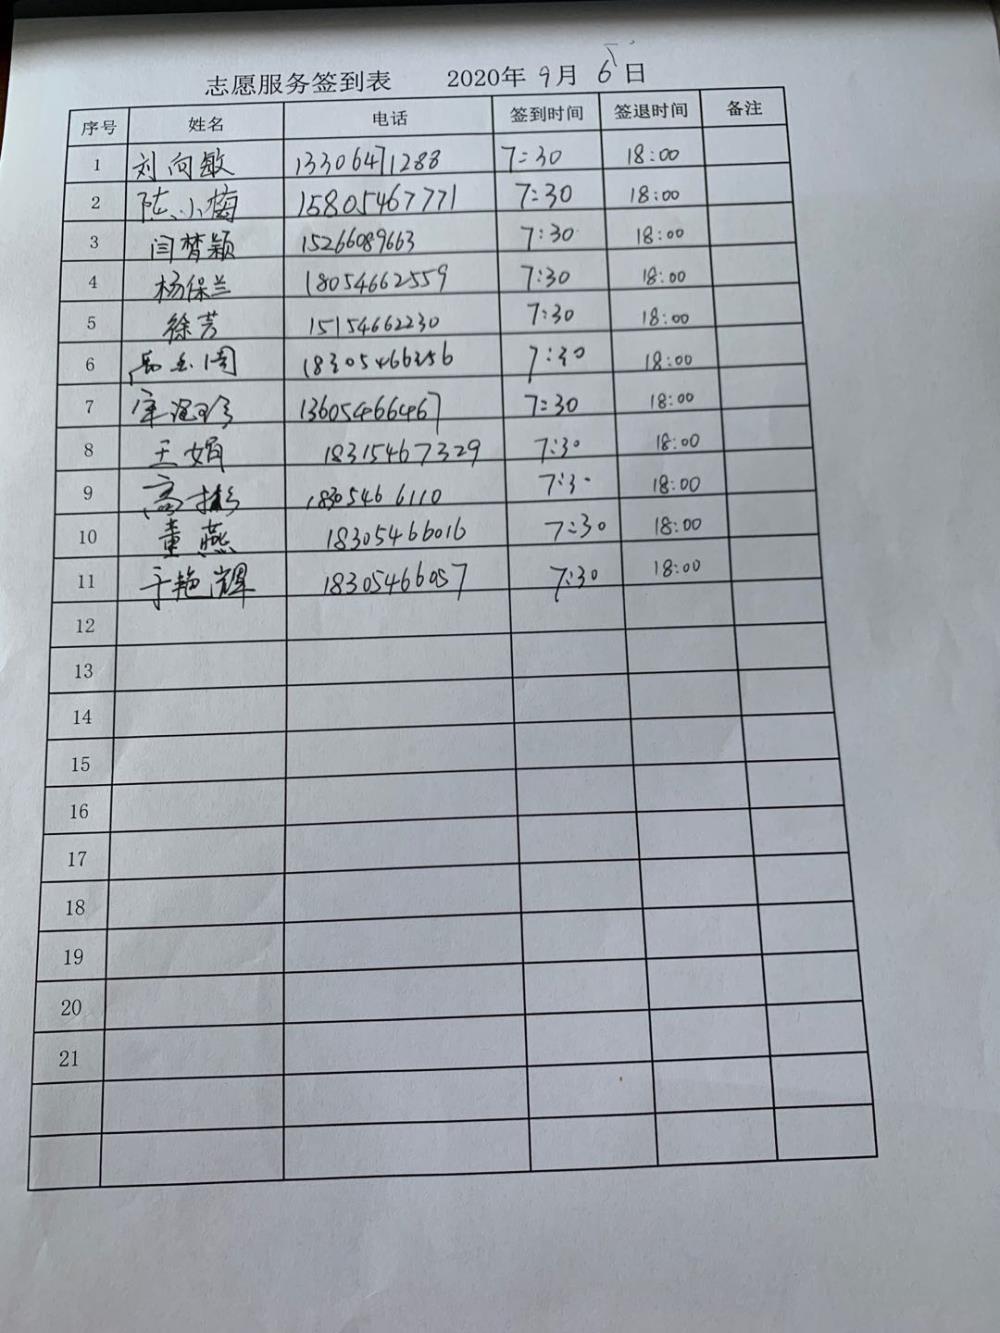 志愿服务签到表 2020年 9月 6日
序号 姓名 电话 签到时间 签退时间 备注
1 刘向敏 13306471288 7:30 18:00
2 陈小梅 15805467771 7:30 18:00
3 闫梦颖 15266089663 7:30 18:00
4 杨保兰 18054662559 7:30 18:00
5 徐芳 15154662230 7:30 18:00
6 18305466256 7:30 18:00
7 13605466467 7:30 18:00
8 王娟 18315467329 7:30 18:00
9 高 1830546 6110 7:30 18:00
10 董燕 18305466016 7:30 18:00
11 于艳辉 18305466057 7:30 18:00
12
13
14
15
16
17
18
19
20
21